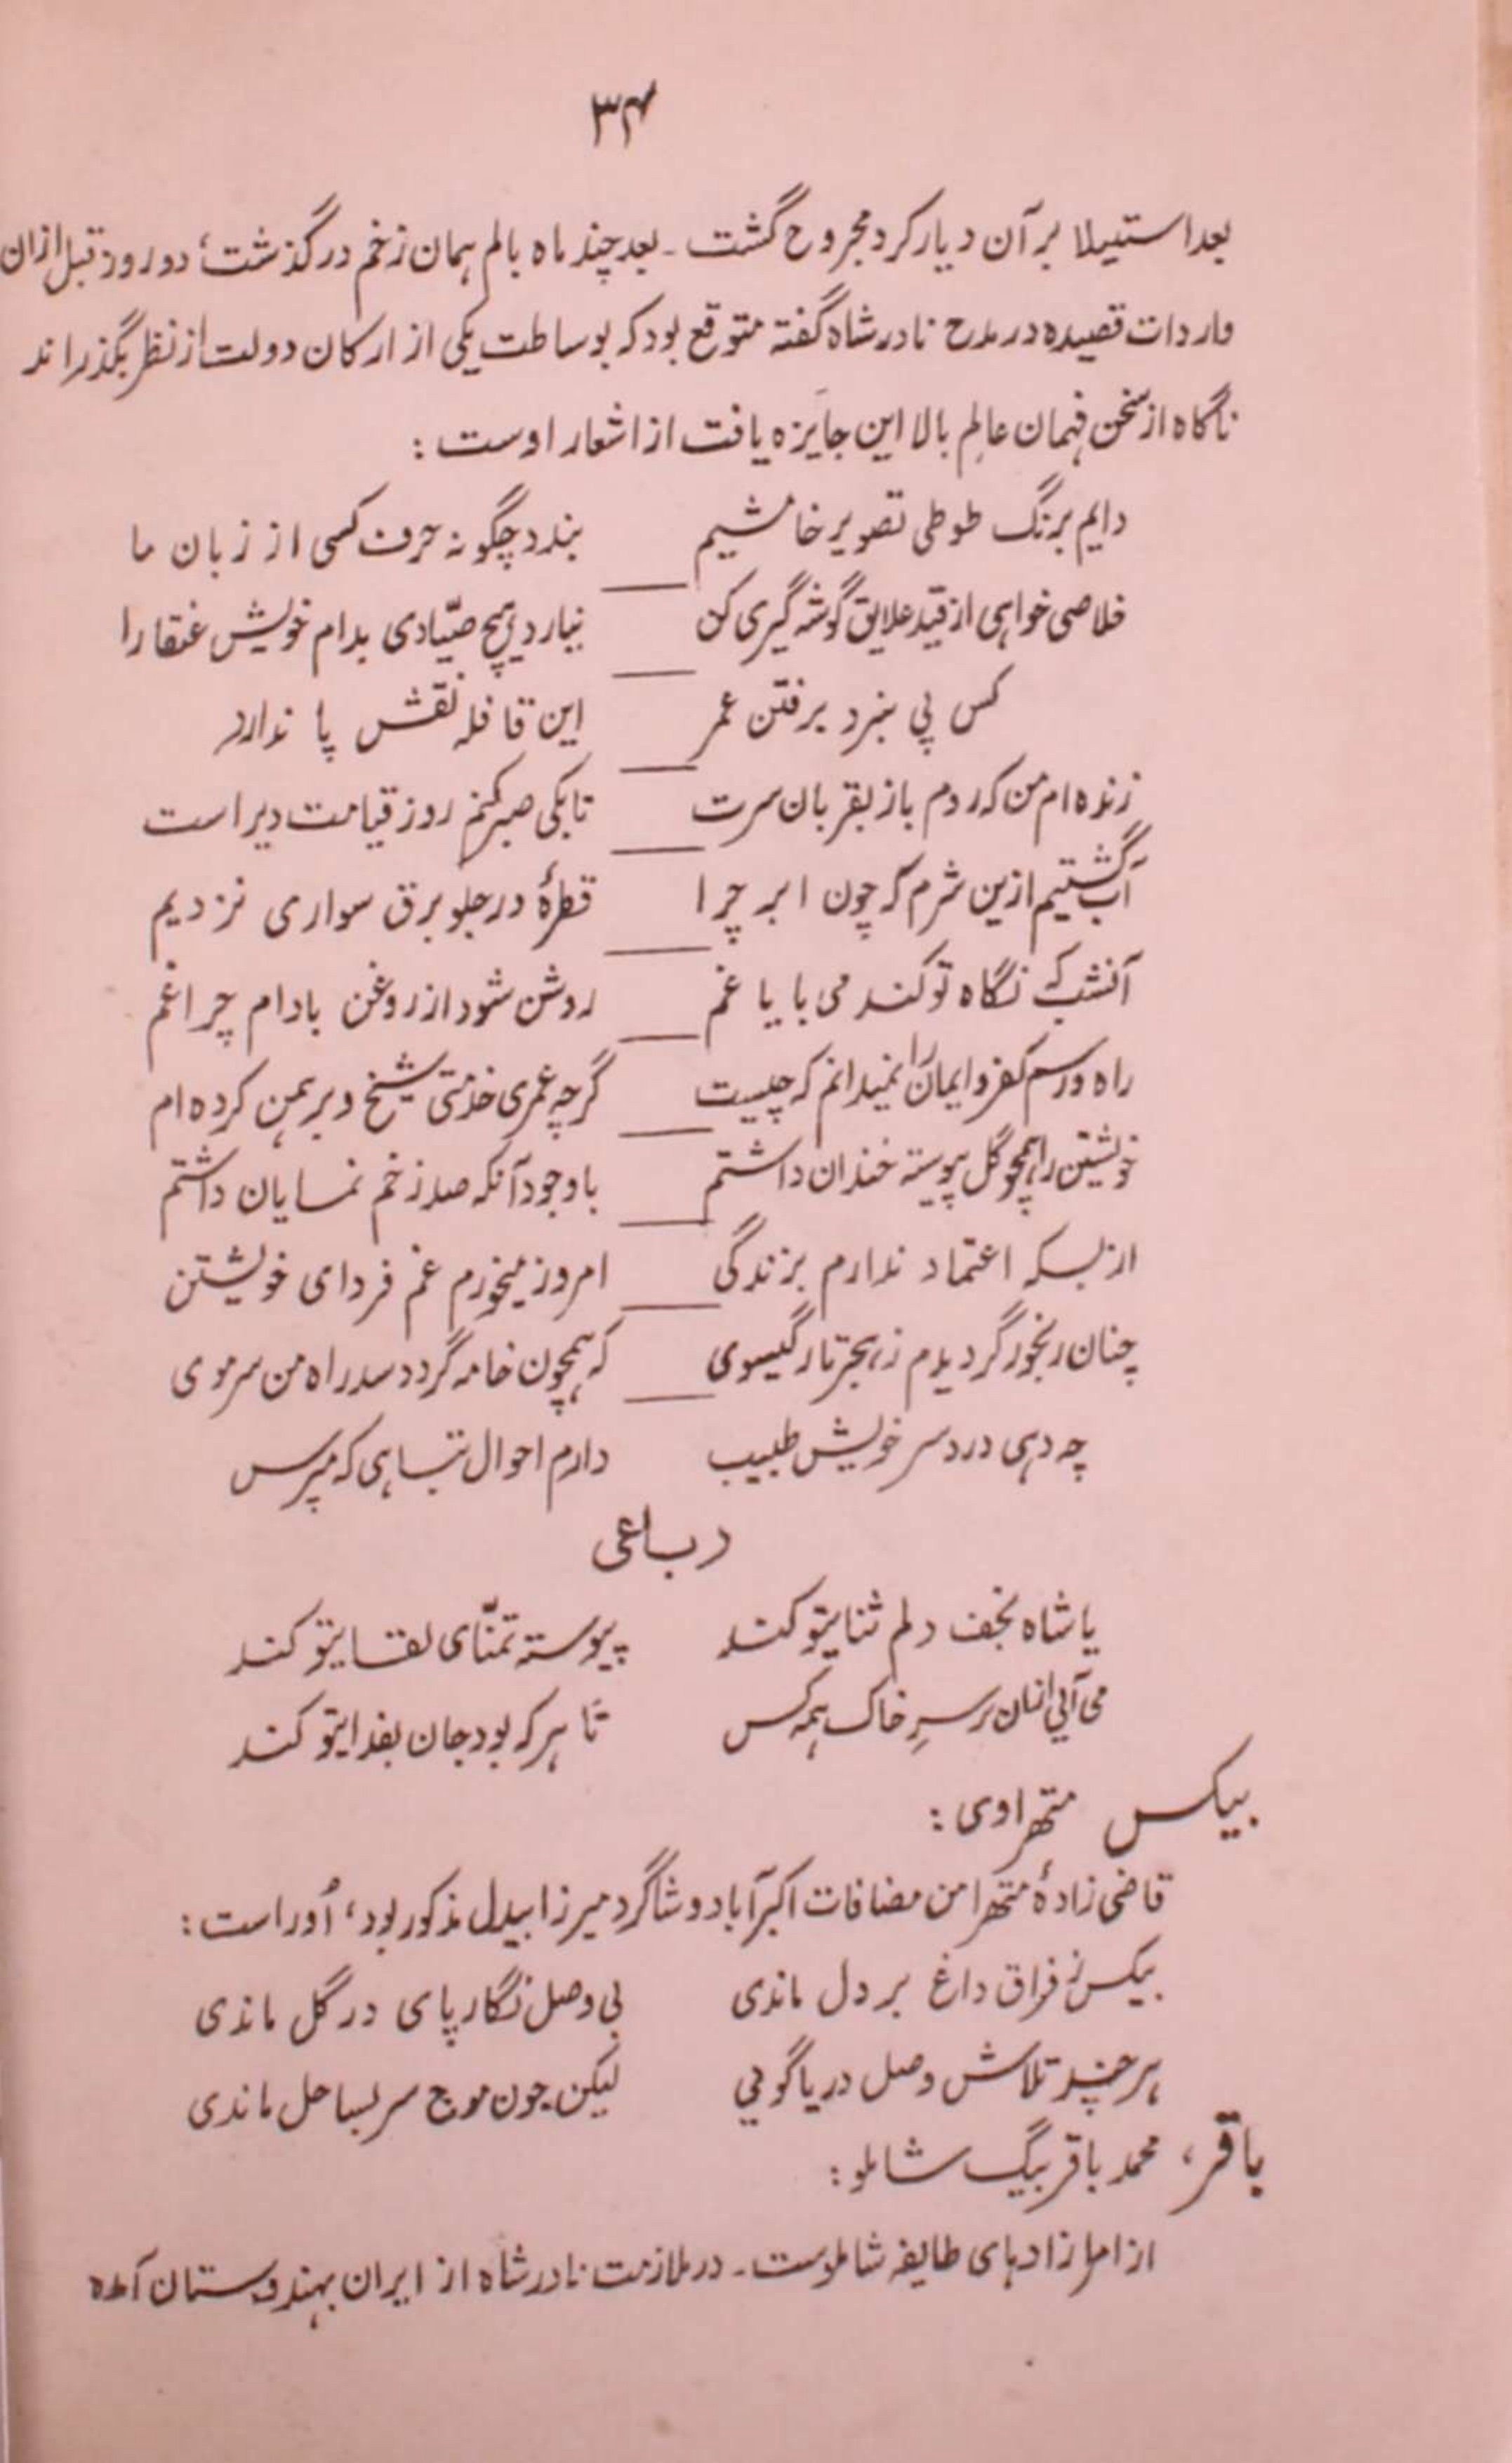 ۳۴
بعد استیلا بر آن دیار کرد مجروح گشت ۔ بعد چند ماه بالم همان زخم در گذشت؛ دو روز قبل ازان
واردات قصیده در مدح نادر شاه گفته متوقع بود که بوساطت یکی از ارکان دولت از نظر بگذراند
ناگاه از سخن فهمان عالم بالا این جایزه یافت از اشعار اوست :
دایم برنگ طوطی تصویر خامشیم بندد چگونه حرف کسی از زبان ما
خلاصی خواهی از قید علایق گوشه گیری کن نیارد هیچ صیّادی بدام خویش عنقا را
کس پی نبرد برفتن عمر این قافله نقش پا ندارد
زنده ام من که روم باز بقربان سرت تا بکی صبر کنم روز قیامت دیر است
آب گشتیم ازین شرم که چون ابر چرا قطرهٔ در جلو برق سواری نزدیم
آنشب که نگاه تو کند می با یاغم روشن شود از روغن بادام چراغم
راه و رسم کفر و ایمان را نمیدانم که چیست گرچه عمری خدمتی شیخ و برهمن کرده ام
خویشتن را همچو گل پیوسته خندان داشتم با وجود آنکه صد زخم نمایان داشتم
از بسکه اعتماد ندارم بزندگی امروز میخورم غم فردای خویشتن
چنان رنجور گردیدم ز هجر تار گیسوی که همچون خامه گردد سد راه من سر موی
چه دهی درد سر خویش طبیب دارم احوال تباهی که مپرس
رباعی
یا شاه نجف دلم ثنایتو کند پیوسته تمنّای لقایتو کند
می آیی ازان بر سرِ خاک همه کس تا هر که بود جان بفدایتو کند
بیکس متهراوی :
قاضی زادهٔ متهرا من مضافات اکبرآباد و شاگرد میرزا بیدل مذکور بود، اُوراست :
بیکس ز فراق داغ بر دل ماندی بی وصل نگار پای در گل ماندی
هر چند تلاش وصل دریا گویی لیکن چون موج سر بساحل ماندی
باقر، محمد باقر بیگ شاملو :
از امرا زادهای طایفه شاملوست ۔ در ملازمت نادر شاه از ایران بهندوستان آمده